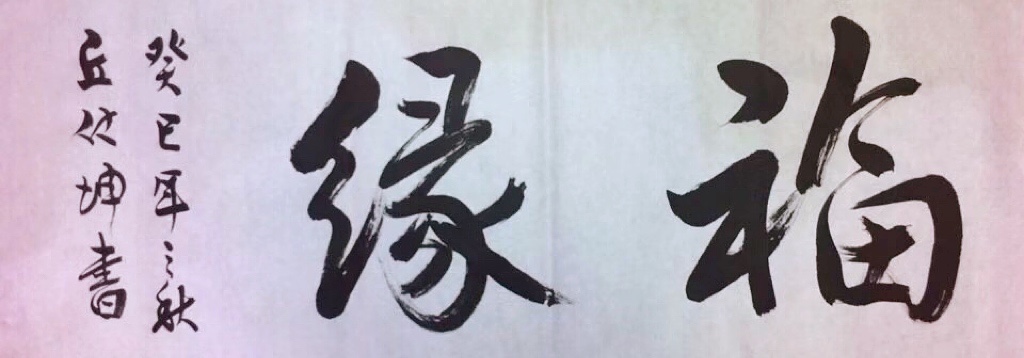 福缘
癸巳年之秋
丘仕坤書